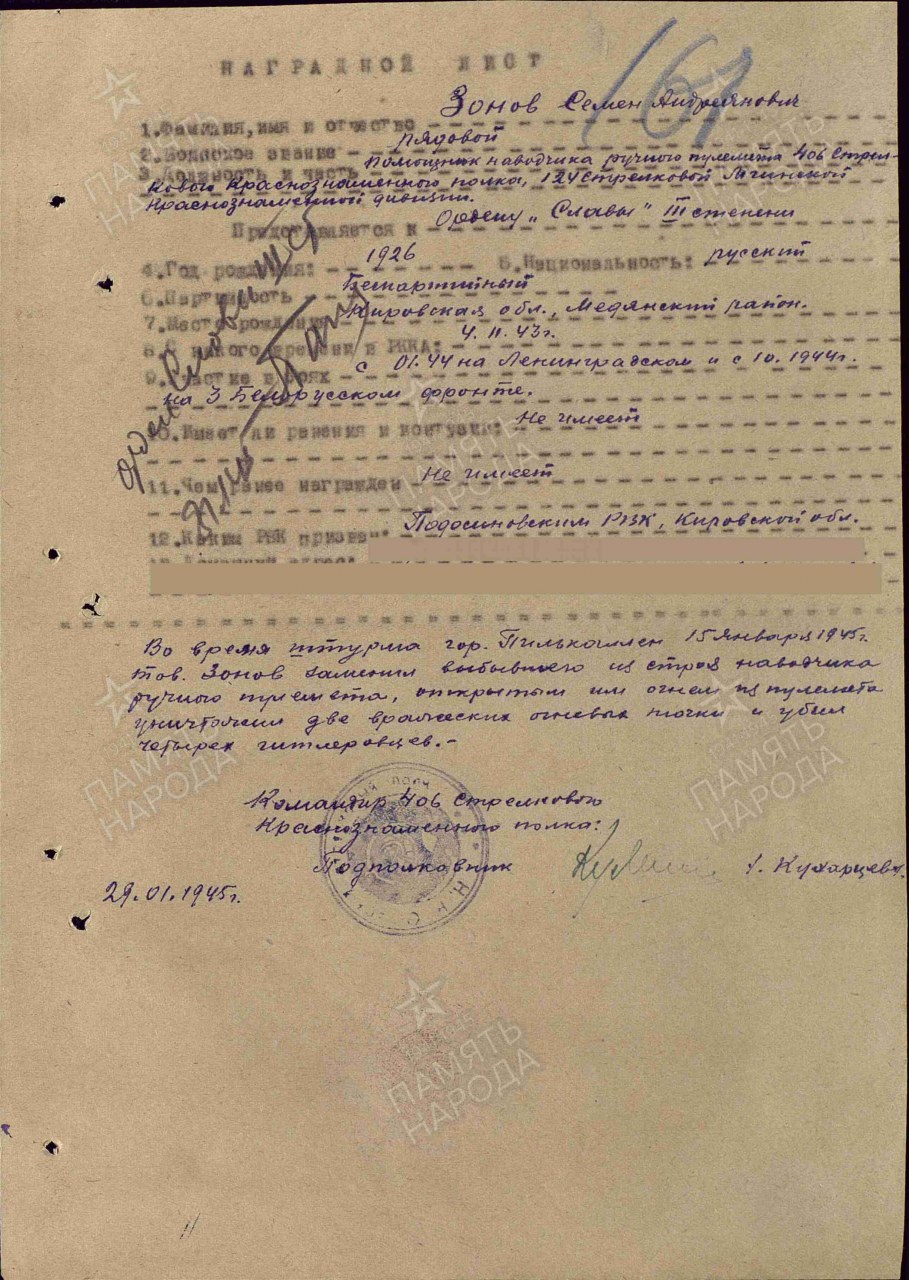 НАГРАДНОЙ ЛИСТ
167
Зонов Семен Андреянович
1.Фамилия,имя и отчество
рядовой
2.Воинское звание
3.Должность и часть помощник наводчика ручного пулемета 406 Стрел-
кового Краснознаменного полка, 124 Стрелковой Мгинской
Краснознаменной дивизии.
Представляется к Ордену "Славы" III степени
4.Год рождения: 1926 5.Национальность: русский
6.Партийность Беспартийный
7.Место рождения Кировская обл., Медянский район.
8.С какого времени в РККА: 4.11.43г.
9.Участие в боях с 01.44 на Ленинградском и с 10.1944г.
на 3 Белорусском фронте.
10.Имеет ли ранения и контузии: Не имеет
11.Чем ранее награжден Не имеет
12.Каким РВК призван: Подосиновским РВК, Кировской обл.
адрес:
орден Славы III
Во время штурма гор. Пилькаллен 15 января 1945г.
тов. Зонов заменил выбывшего из строя наводчика
ручного пулемета, открытым им огнем из пулемета
уничтожил две вражеских огневых точки и убил
четырех гитлеровцев.-
Командир 406 Стрелкового
Краснознаменного полка:
Подполковник Кухарцев.
29.01.1945г.
НКО
ПАМЯТЬ
НАРОДА
ПАМЯТЬ
НАРОДА
ПАМЯТЬ
НАРОДА
ПАМЯТЬ
НАРОДА
ПАМЯТЬ
НАРОДА
ПАМЯТЬ
НАРОДА